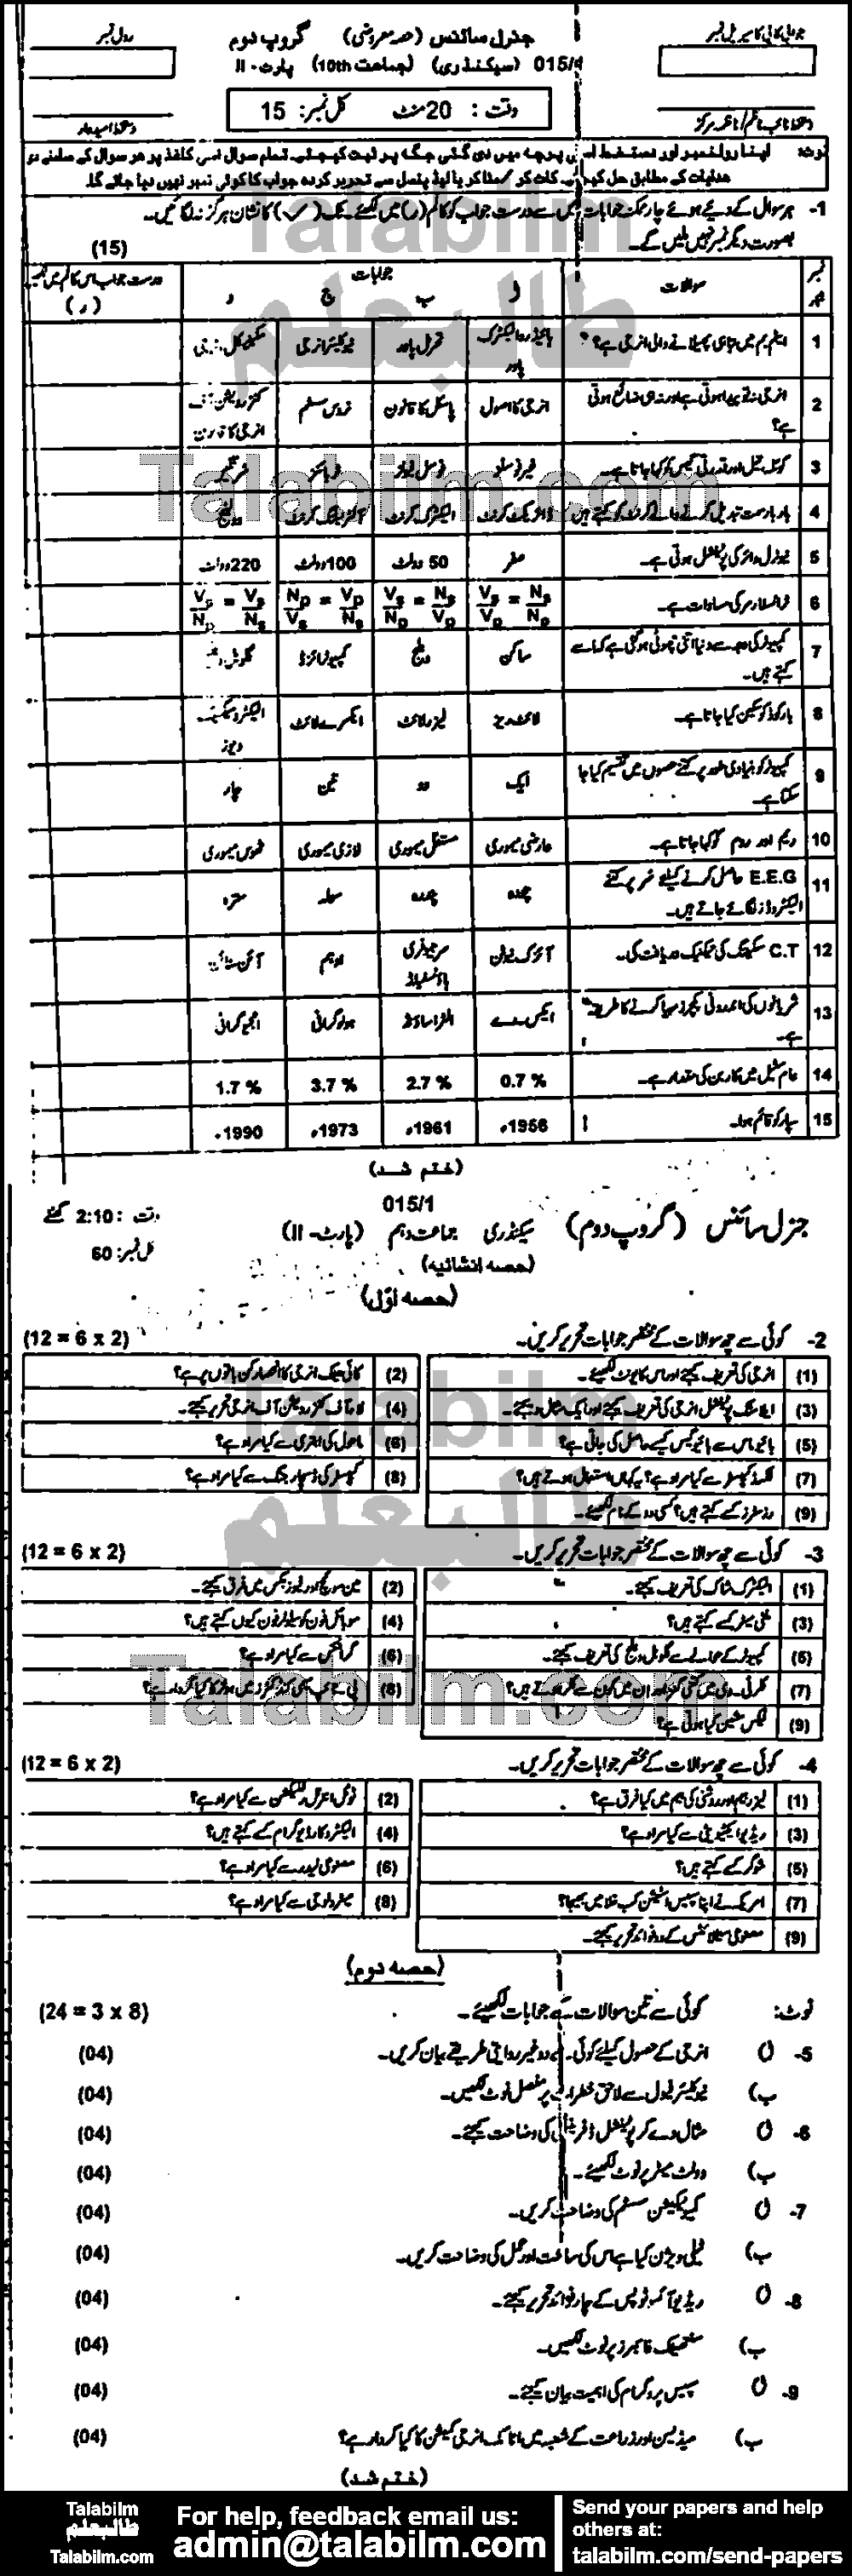 رول نمبر
جنرل سائنس (حصہ معروضی) گروپ دوم
جوابی کاپی کا سیریل نمبر
015/1 (سیکنڈری) (جماعت 10th) پارٹ - II
وقت : 20 منٹ کل نمبر: 15
دستخط امیدوار
نوٹ: اپنا رولنمبر اور دستخط اس پرچہ میں دی گئی جگہ پر ثبت کیجئے۔ تمام سوال اسی کاغذ پر ہر سوال کے سامنے دی
ہدایات کے مطابق حل کیجئے۔ کاٹ کر / مٹا کر یا لیڈ پنسل سے تحریر کردہ جواب کا کوئی نمبر نہیں دیا جائے گا۔
1- ہر سوال کے دیے ہوئے چار ممکنہ جوابات میں سے درست جواب کو کالم (ر) میں لکھئے۔ ٹک (✓) کا نشان ہرگز نہ لگائیں۔
بصورت دیگر نمبر نہیں ملیں گے۔ (15)
نمبر شمار سوالات جوابات درست جواب اس کالم میں لکھیے (ر)
ا ب ج د
1 ایٹم بم میں تباہی پھیلانے والی انرجی ہے؟ ہائیڈروالیکٹرک پاور تھرمل پاور نیوکلیئر انرجی کیمیکل انرجی
2 انرجی نہ تو پیدا ہوتی ہے اور نہ ہی ضائع ہوتی ہے؟ انرجی کا اصول پاسکل کا قانون نروس سسٹم کنزرویشن آف انرجی کا قانون
3 کوئلہ، تیل اور قدرتی گیس کو کہا جاتا ہے۔ فوسل فیولز
4 بار بار سمت تبدیل کرنے والے کرنٹ کو کہتے ہیں ڈائریکٹ کرنٹ الیکٹرک کرنٹ آلٹرنیٹنگ کرنٹ وولٹیج
5 نیوٹرل وائر کی پوٹینشل ہوتی ہے۔ صفر 50 وولٹ 100 وولٹ 220 وولٹ
6 ٹرانسفارمر کی مساوات ہے۔ Vs/Vp = Ns/Np Vs/Np = Ns/Vp Np/Vs = Vp/Ns Vp/Np = Vs/Ns
7 کمپیوٹر کی وجہ سے دنیا اتنی چھوٹی ہو گئی ہے کہ اسے کہتے ہیں۔ ساکن ولیج کمپیوٹرائزڈ گلوبل ولیج
8 بارکوڈ کو سکین کیا جاتا ہے۔ لائٹ سے لیزر لائٹ ایکسرے لائٹ الیکٹرومیگنیٹک ویوز
9 کمپیوٹر کو بنیادی طور پر کتنے حصوں میں تقسیم کیا جا سکتا ہے۔ ایک دو تین چار
10 ریم اور روم کو کہا جاتا ہے۔ عارضی میموری مستقل میموری لازمی میموری ٹھوس میموری
11 E.E.G حاصل کرنے کیلئے سر پر کتنے الیکٹروڈز لگائے جاتے ہیں۔ سولہ سترہ
12 C.T سکیننگ کی تکنیک دریافت کی۔ آئزک نیوٹن سر جیفری ہاؤنسفیلڈ اوہم آئن سٹائن
13 شریانوں کی اندرونی پکچرز مہیا کرنے کا طریقہ ہے۔ ایکس رے الٹراساؤنڈ ہولوگرافی انجیوگرافی
14 عام سٹیل میں کاربن کی مقدار ہے۔ 0.7 % 2.7 % 3.7 % 1.7 %
15 سپارکو قائم ہوا۔ 1956ء 1961ء 1973ء 1990ء
(ختم شد)
015/1
جنرل سائنس (گروپ دوم) سیکنڈری جماعت دہم (پارٹ - II) وقت : 2:10 گھنٹے
(حصہ انشائیہ) کل نمبر: 60
(حصہ اوّل)
2- کوئی سے چھ سوالات کے مختصر جوابات تحریر کریں۔ (12 = 6 x 2)
(1) انرجی کی تعریف کیجئے اور اس کا یونٹ لکھیے۔ (2) کائی نیٹک انرجی کا انحصار کن باتوں پر ہے؟
(3) ایلاسٹک پوٹینشل انرجی کی تعریف کیجئے اور ایک مثال دیجئے۔ (4) لاء آف کنزرویشن آف انرجی تحریر کیجئے۔
(5) بائیوماس سے بائیو گیس کیسے حاصل کی جاتی ہے؟ (6) ماحول کی ابتری سے کیا مراد ہے؟
(7) فکسڈ کپیسٹر سے کیا مراد ہے؟ یہ کہاں استعمال ہوتے ہیں؟ (8) کپیسٹر کی ڈسچارجنگ سے کیا مراد ہے؟
(9) رزسٹرز کسے کہتے ہیں؟ کسی دو کے نام لکھیئے۔
3- کوئی سے چھ سوالات کے مختصر جوابات تحریر کریں۔ (12 = 6 x 2)
(1) الیکٹرک شاک کی تعریف کیجئے۔ (2) مین سوئچ اور فیوز بکس میں فرق کیجئے۔
(3) ملٹی میٹر کسے کہتے ہیں؟ (4) موبائل فون کو سیلولر فون کیوں کہتے ہیں؟
(5) کمپیوٹر کے حوالے سے گلوبل ولیج کی تعریف کیجئے۔ (6) گرافکس سے کیا مراد ہے؟
(7) کلر ٹی۔وی میں کتنی گنز اور ان میں کون سے کلر ہوتے ہیں؟ (8)
(9) فیکس مشین کیا ہوتی ہے؟
4- کوئی سے چھ سوالات کے مختصر جوابات تحریر کریں۔ (12 = 6 x 2)
(1) لیزر بیم اور روشنی کی بیم میں کیا فرق ہے؟ (2) ٹوٹل انٹرنل ریفلیکشن سے کیا مراد ہے؟
(3) ریڈیو ایکٹیویٹی سے کیا مراد ہے؟ (4) الیکٹرو کارڈیو گرام کسے کہتے ہیں؟
(5) شوگر کسے کہتے ہیں؟ (6) مصنوعی لیدر سے کیا مراد ہے؟
(7) امریکہ نے اپنا سپیس اسٹیشن کب خلا میں بھیجا؟ (8) میٹرولوجی سے کیا مراد ہے؟
(9) مصنوعی سیٹلائٹس کے دو فوائد تحریر کیجئے۔
(حصہ دوم)
نوٹ: کوئی سے تین سوالات کے جوابات لکھیئے۔ (24 = 3 x 8)
5- (ا) انرجی کے حصول کیلئے کوئی سے دو غیر روایتی طریقے بیان کریں۔ (04)
ب) نیوکلیئر فیول سے لاحق خطرات پر مفصل نوٹ لکھیں۔ (04)
6- (ا) مثال دے کر پوٹینشل ڈفرینس کی وضاحت کیجئے۔ (04)
ب) وولٹ میٹر پر نوٹ لکھیئے۔ (04)
7- (ا) کمیونیکیشن سسٹم کی وضاحت کریں۔ (04)
ب) ٹیلی ویژن کیا ہے اس کی ساخت اور عمل کی وضاحت کریں۔ (04)
8- (ا) ریڈیو آئسوٹوپس کے چار فوائد تحریر کیجئے۔ (04)
ب) سنتھیٹک فائبرز پر نوٹ لکھیں۔ (04)
9- (ا) سپیس پروگرام کی اہمیت بیان کیجئے۔ (04)
ب) میڈیسن اور زراعت کے شعبہ میں اٹامک انرجی کمیشن کا کیا کردار ہے؟ (04)
(ختم شد)
Talabilm
طالبعلم
Talabilm.com
Talabilm
طالبعلم
Talabilm.com
Talabilm
طالبعلم
Talabilm.com
For help, feedback email us:
admin@talabilm.com
Send your papers and help
others at:
talabilm.com/send-papers